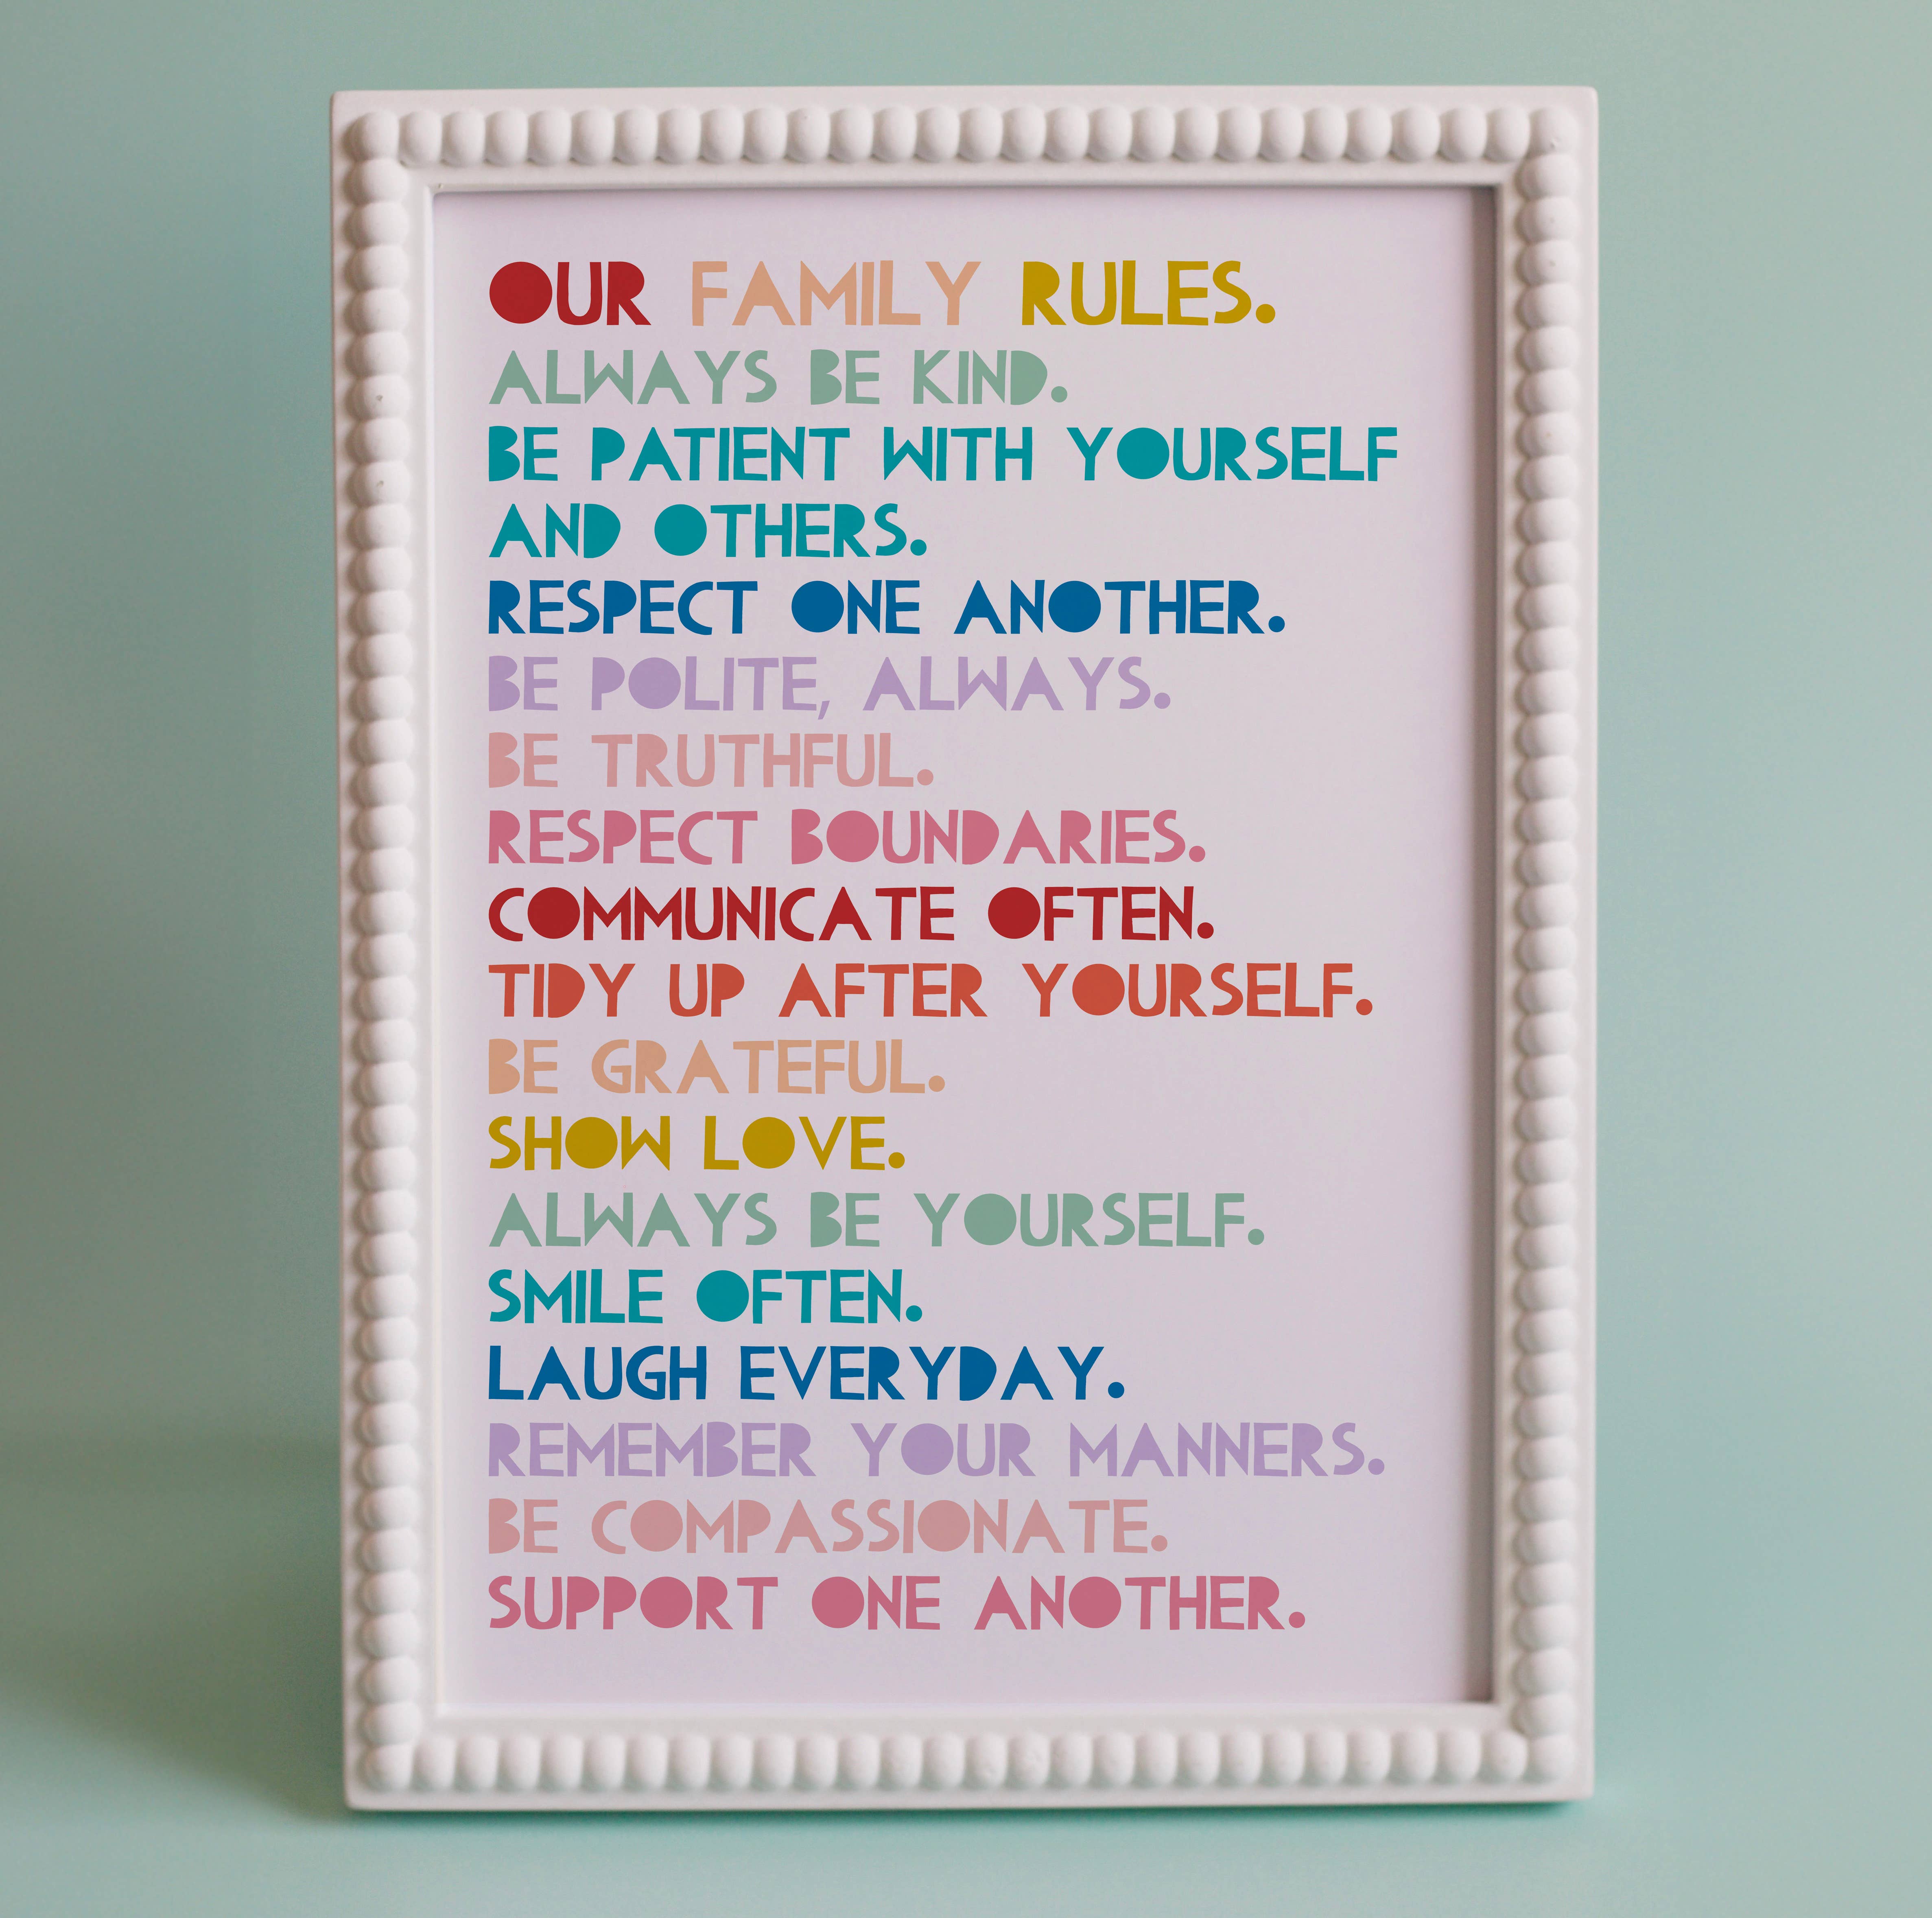 OUR FAMILY RULES.
ALWAYS BE KIND.
BE PATIENT WITH YOURSELF
AND OTHERS.
RESPECT ONE ANOTHER.
BE POLITE, ALWAYS.
BE TRUTHFUL.
RESPECT BOUNDARIES.
COMMUNICATE OFTEN.
TIDY UP AFTER YOURSELF.
BE GRATEFUL.
SHOW LOVE.
ALWAYS BE YOURSELF.
SMILE OFTEN.
LAUGH EVERYDAY.
REMEMBER YOUR MANNERS.
BE COMPASSIONATE.
SUPPORT ONE ANOTHER.